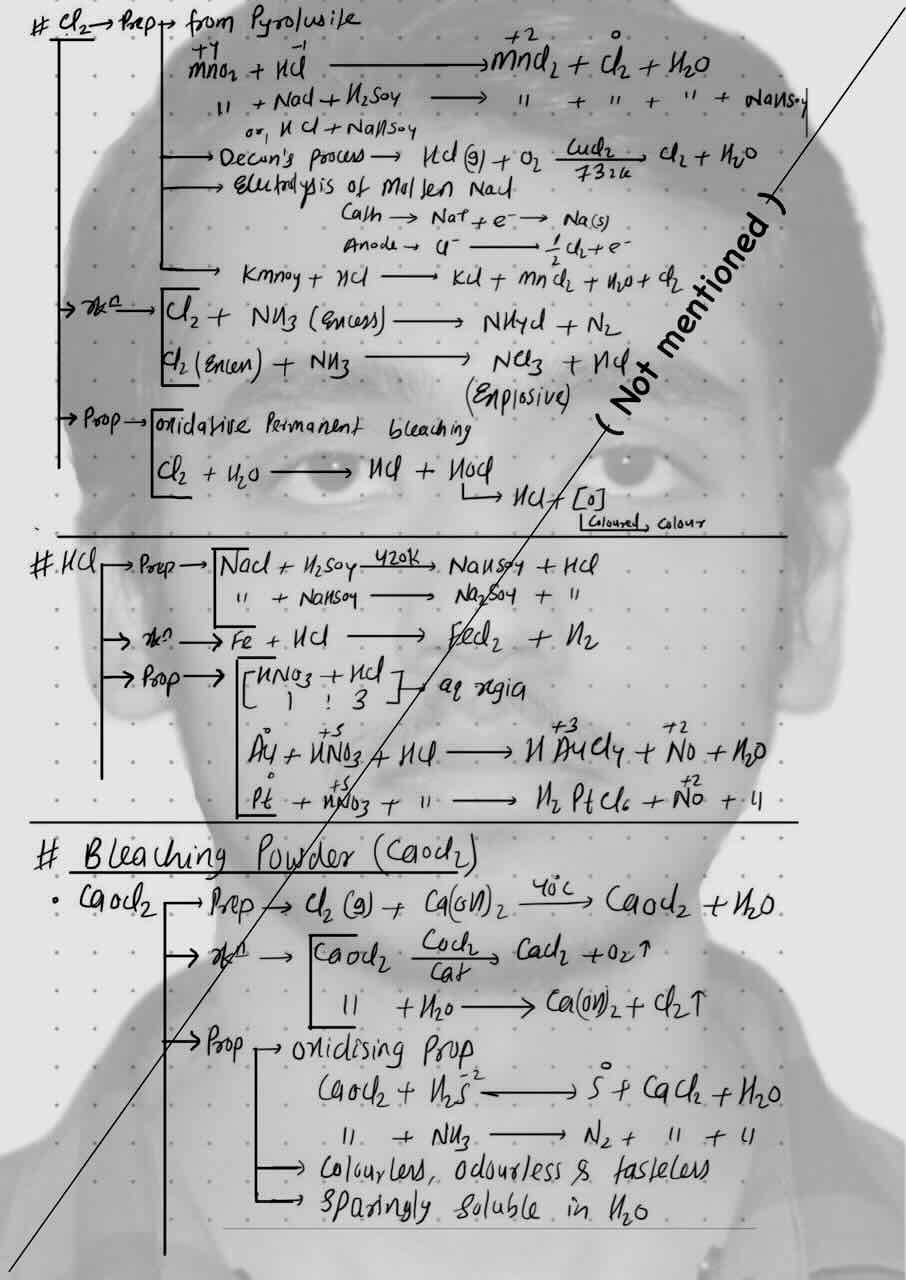 # Cl2 → Prep → from Pyrolusite
+4 -1 +2 0
MnO2 + HCl → MnCl2 + Cl2 + H2O
" + NaCl + H2SO4 → " + " + " + NaHSO4
or, HCl + NaHSO4
→ Decon's process → HCl (g) + O2 CuCl2 → Cl2 + H2O
732K
→ Electrolysis of Molten NaCl
Cath → Na+ + e- → Na(s)
Anode → Cl- → 1/2 Cl2 + e-
→ KMnO4 + HCl → KCl + MnCl2 + H2O + Cl2
→ rxn → Cl2 + NH3 (Excess) → NH4Cl + N2
Cl2 (Excess) + NH3 → NCl3 + HCl
(Explosive)
( Not mentioned )
→ Prop → oxidative Permanent bleaching
Cl2 + H2O → HCl + HOCl
→ HCl + [O]
Coloured → Colour
# HCl → Prep → NaCl + H2SO4 420K → NaHSO4 + HCl
" + NaHSO4 → Na2SO4 + "
→ rxn → Fe + HCl → FeCl2 + H2
→ Prop → [HNO3 + HCl
1 : 3 ] → aq regia
0 +5 +3 +2
Au + HNO3 + HCl → HAuCl4 + NO + H2O
0 +5 +2
Pt + HNO3 + " → H2PtCl6 + NO + "
# Bleaching Powder (CaOCl2)
• CaOCl2 → Prep → Cl2 (g) + Ca(OH)2 40°C → CaOCl2 + H2O
→ rxn → CaOCl2 CoCl2 → CaCl2 + O2↑
Cat
" + H2O → Ca(OH)2 + Cl2↑
→ Prop → oxidising Prop
CaOCl2 + H2S-2 → S0 + CaCl2 + H2O
" + NH3 → N2 + " + "
→ Colourless, odourless & tasteless
→ Sparingly soluble in H2O